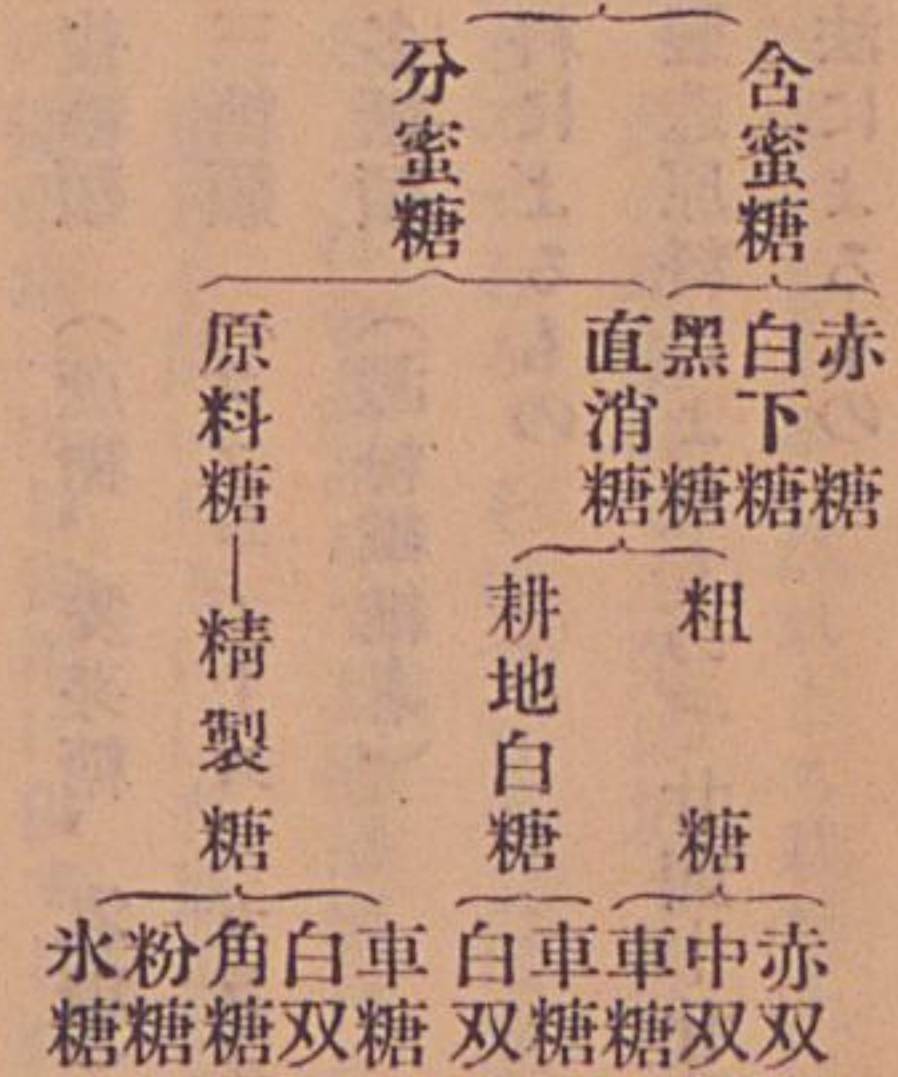 含蜜糖
赤糖
白下糖
黑糖
分蜜糖
直消糖
粗糖
赤双
中双
車糖
耕地白糖
車糖
白双
原料糖―精製糖
車糖
白双
角糖
粉糖
氷糖